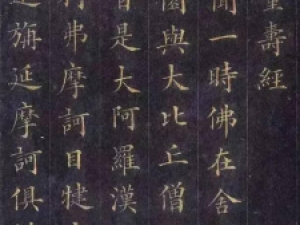 壽經
聞一時佛在舍
園與大比丘僧
皆是大阿羅漢
利弗摩訶目犍
旃延摩訶俱